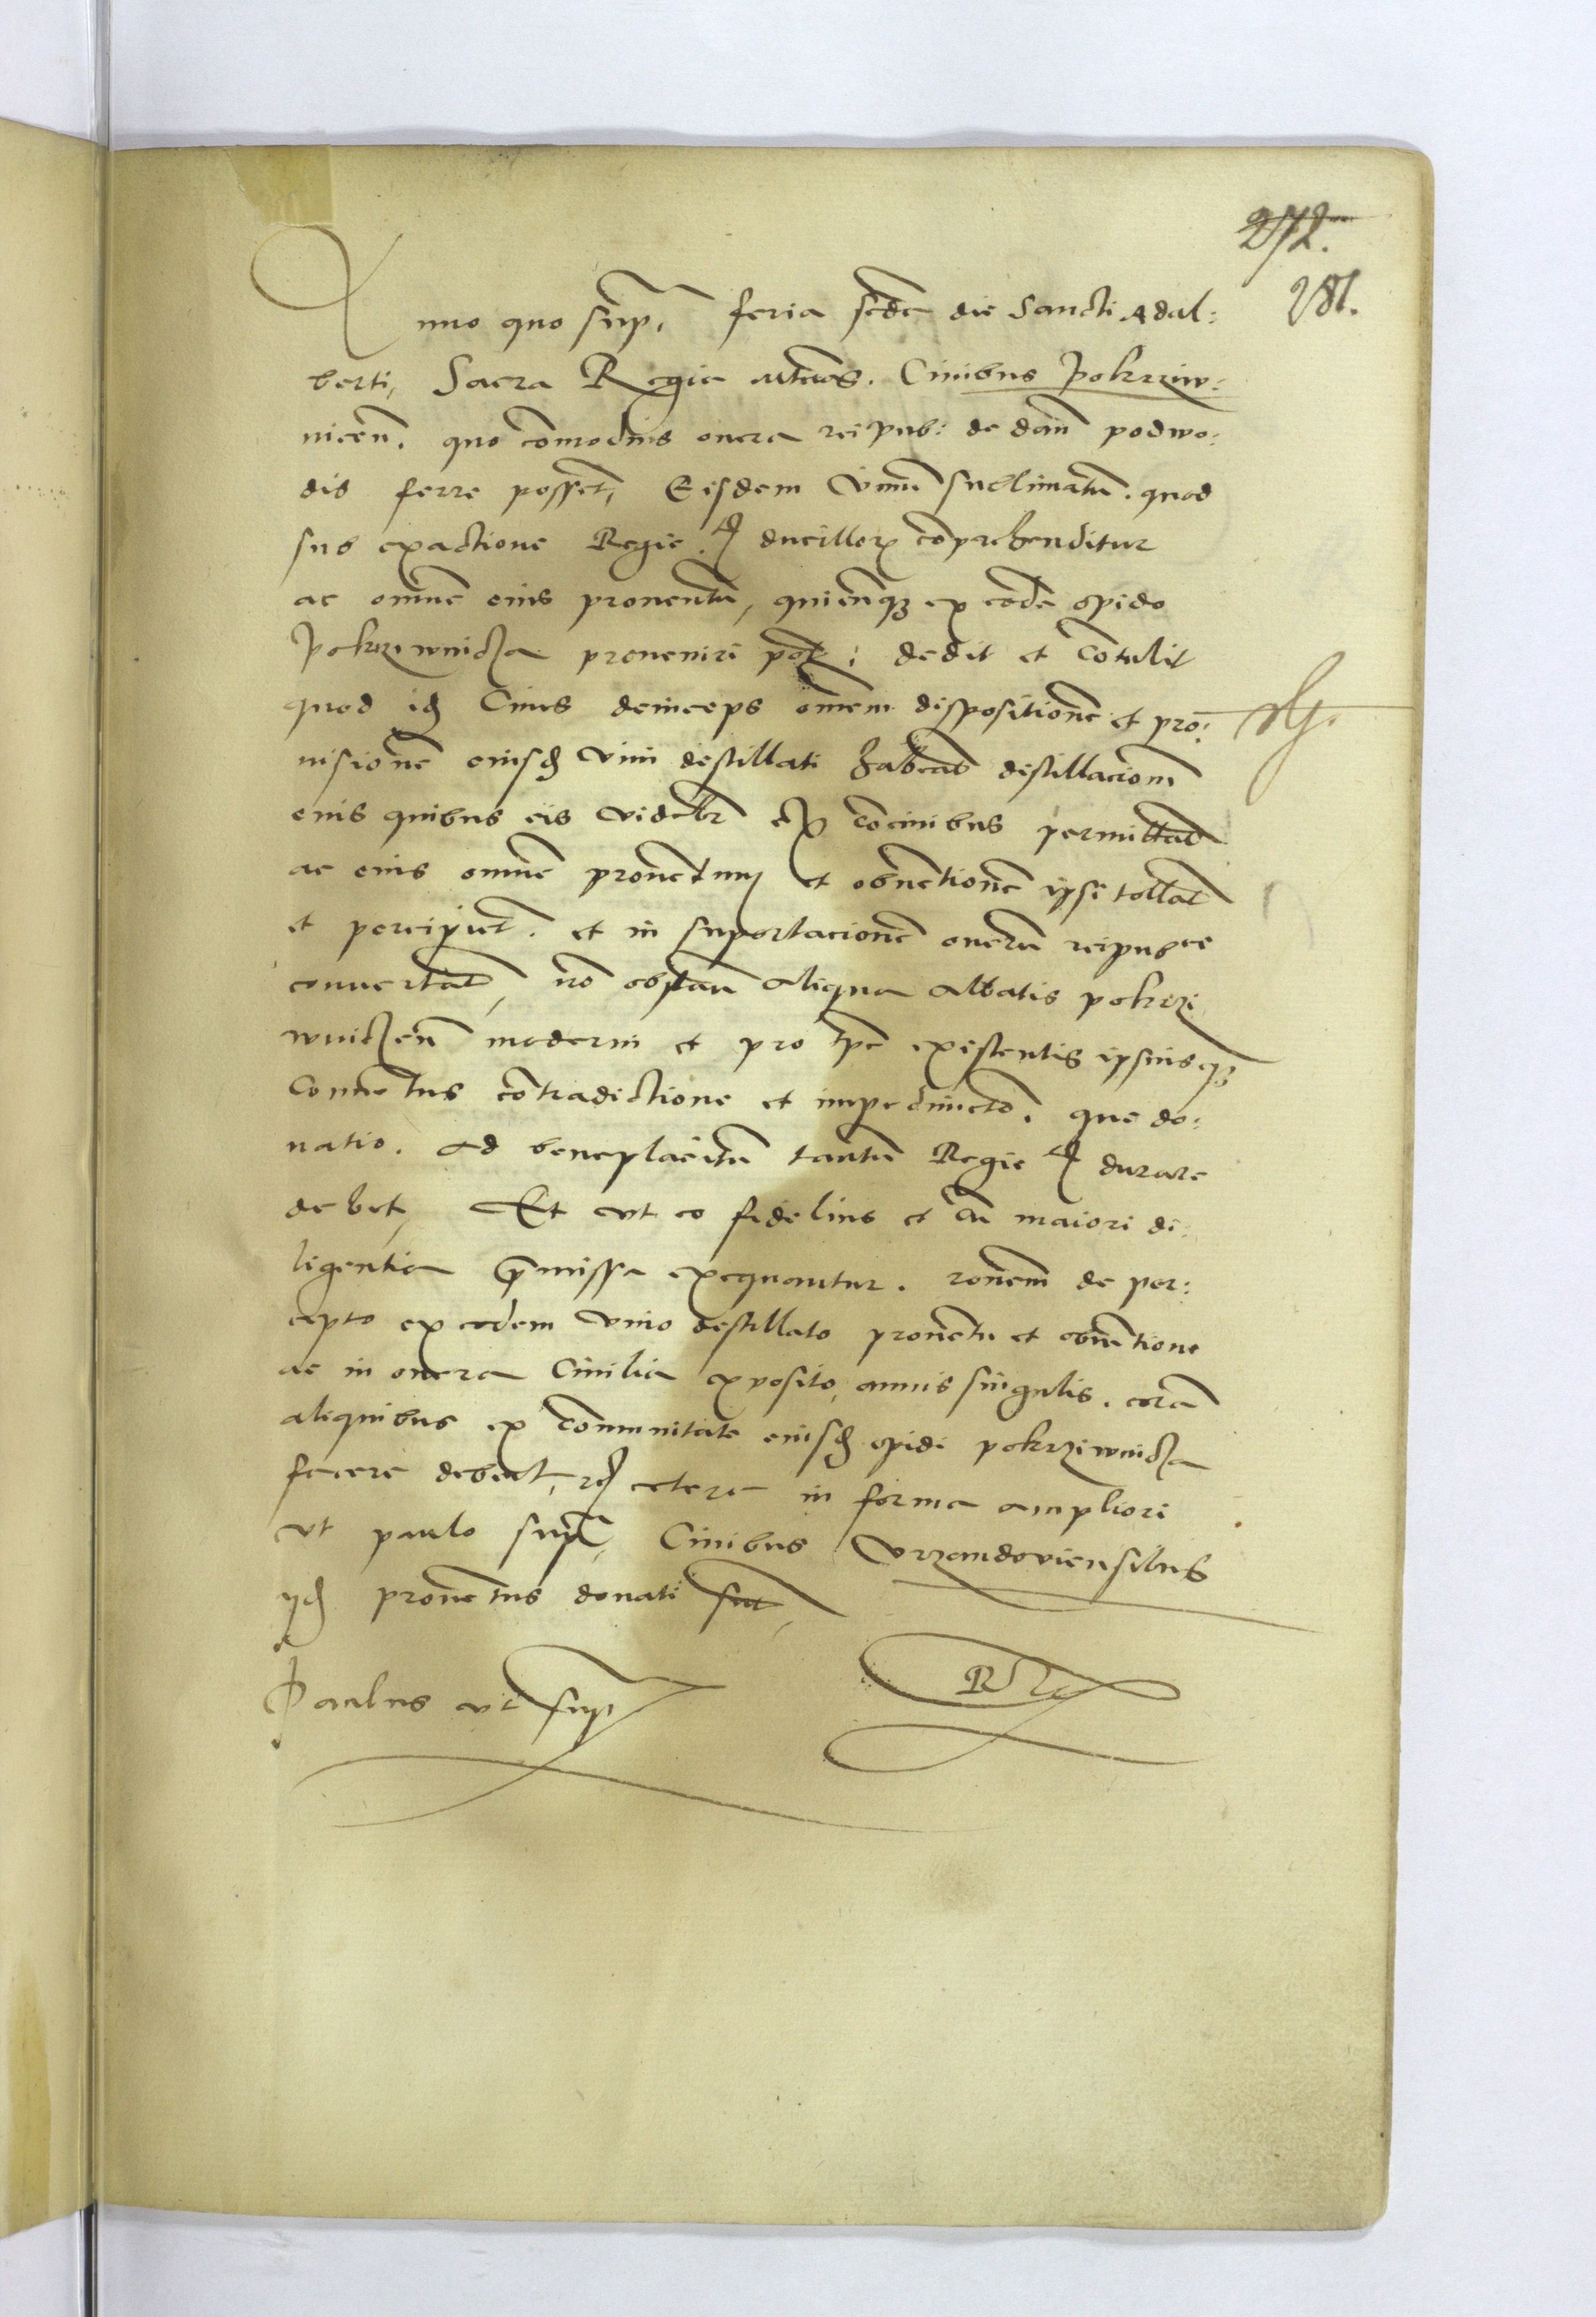 272.
281.
Anno quo sup. feria scda die Sancti Adal:
berti, Sacra Regia Mtas. Ciuibus Pokrziw:
nicen. quo comodius onera reipub: de dan podwo:
dis ferre possent, Eisdem vinum sublimatu. quod
sub exactione Regie M ducillor comprehenditur
ac omne eius prouentu, quicunq ex eode opido
Pokrziwnicza prouenire pot: dedit et Contulit
quod id Ciues deinceps omem dispositione et pro:
uisione eiusd vini destillati habeat destillacionem
eius quibus eis videbr ex conciuibus permittat
ac eius omne prouentum et obuentione ipsi tollat
et percipiet. et in suportacione oneru reipubce
conuertat, no obstan aliqua Abbatis pokrzi
wniczen moderni et pro tpe existentis ipsiusq
Conuentus contradictione et impedimeto. que do:
natio. ad beneplacitu tantu Regie M durare
debet, Et vt eo fidelius et cu maiori di:
ligentia pmissa exequantur. ronem de per:
cepto ex eodem vino destillato prouentu et obuentione
ac in onera Ciuilia exposito, annis singulis. cora
aliquibus ex comunitate eiusd opidi pokrziwnicza
facere debeat, cetera in forma ampliori
vt paulo sup. Ciuibus Vrzendoviensibus
yd prouentus donati sut,
Paulus vt sup